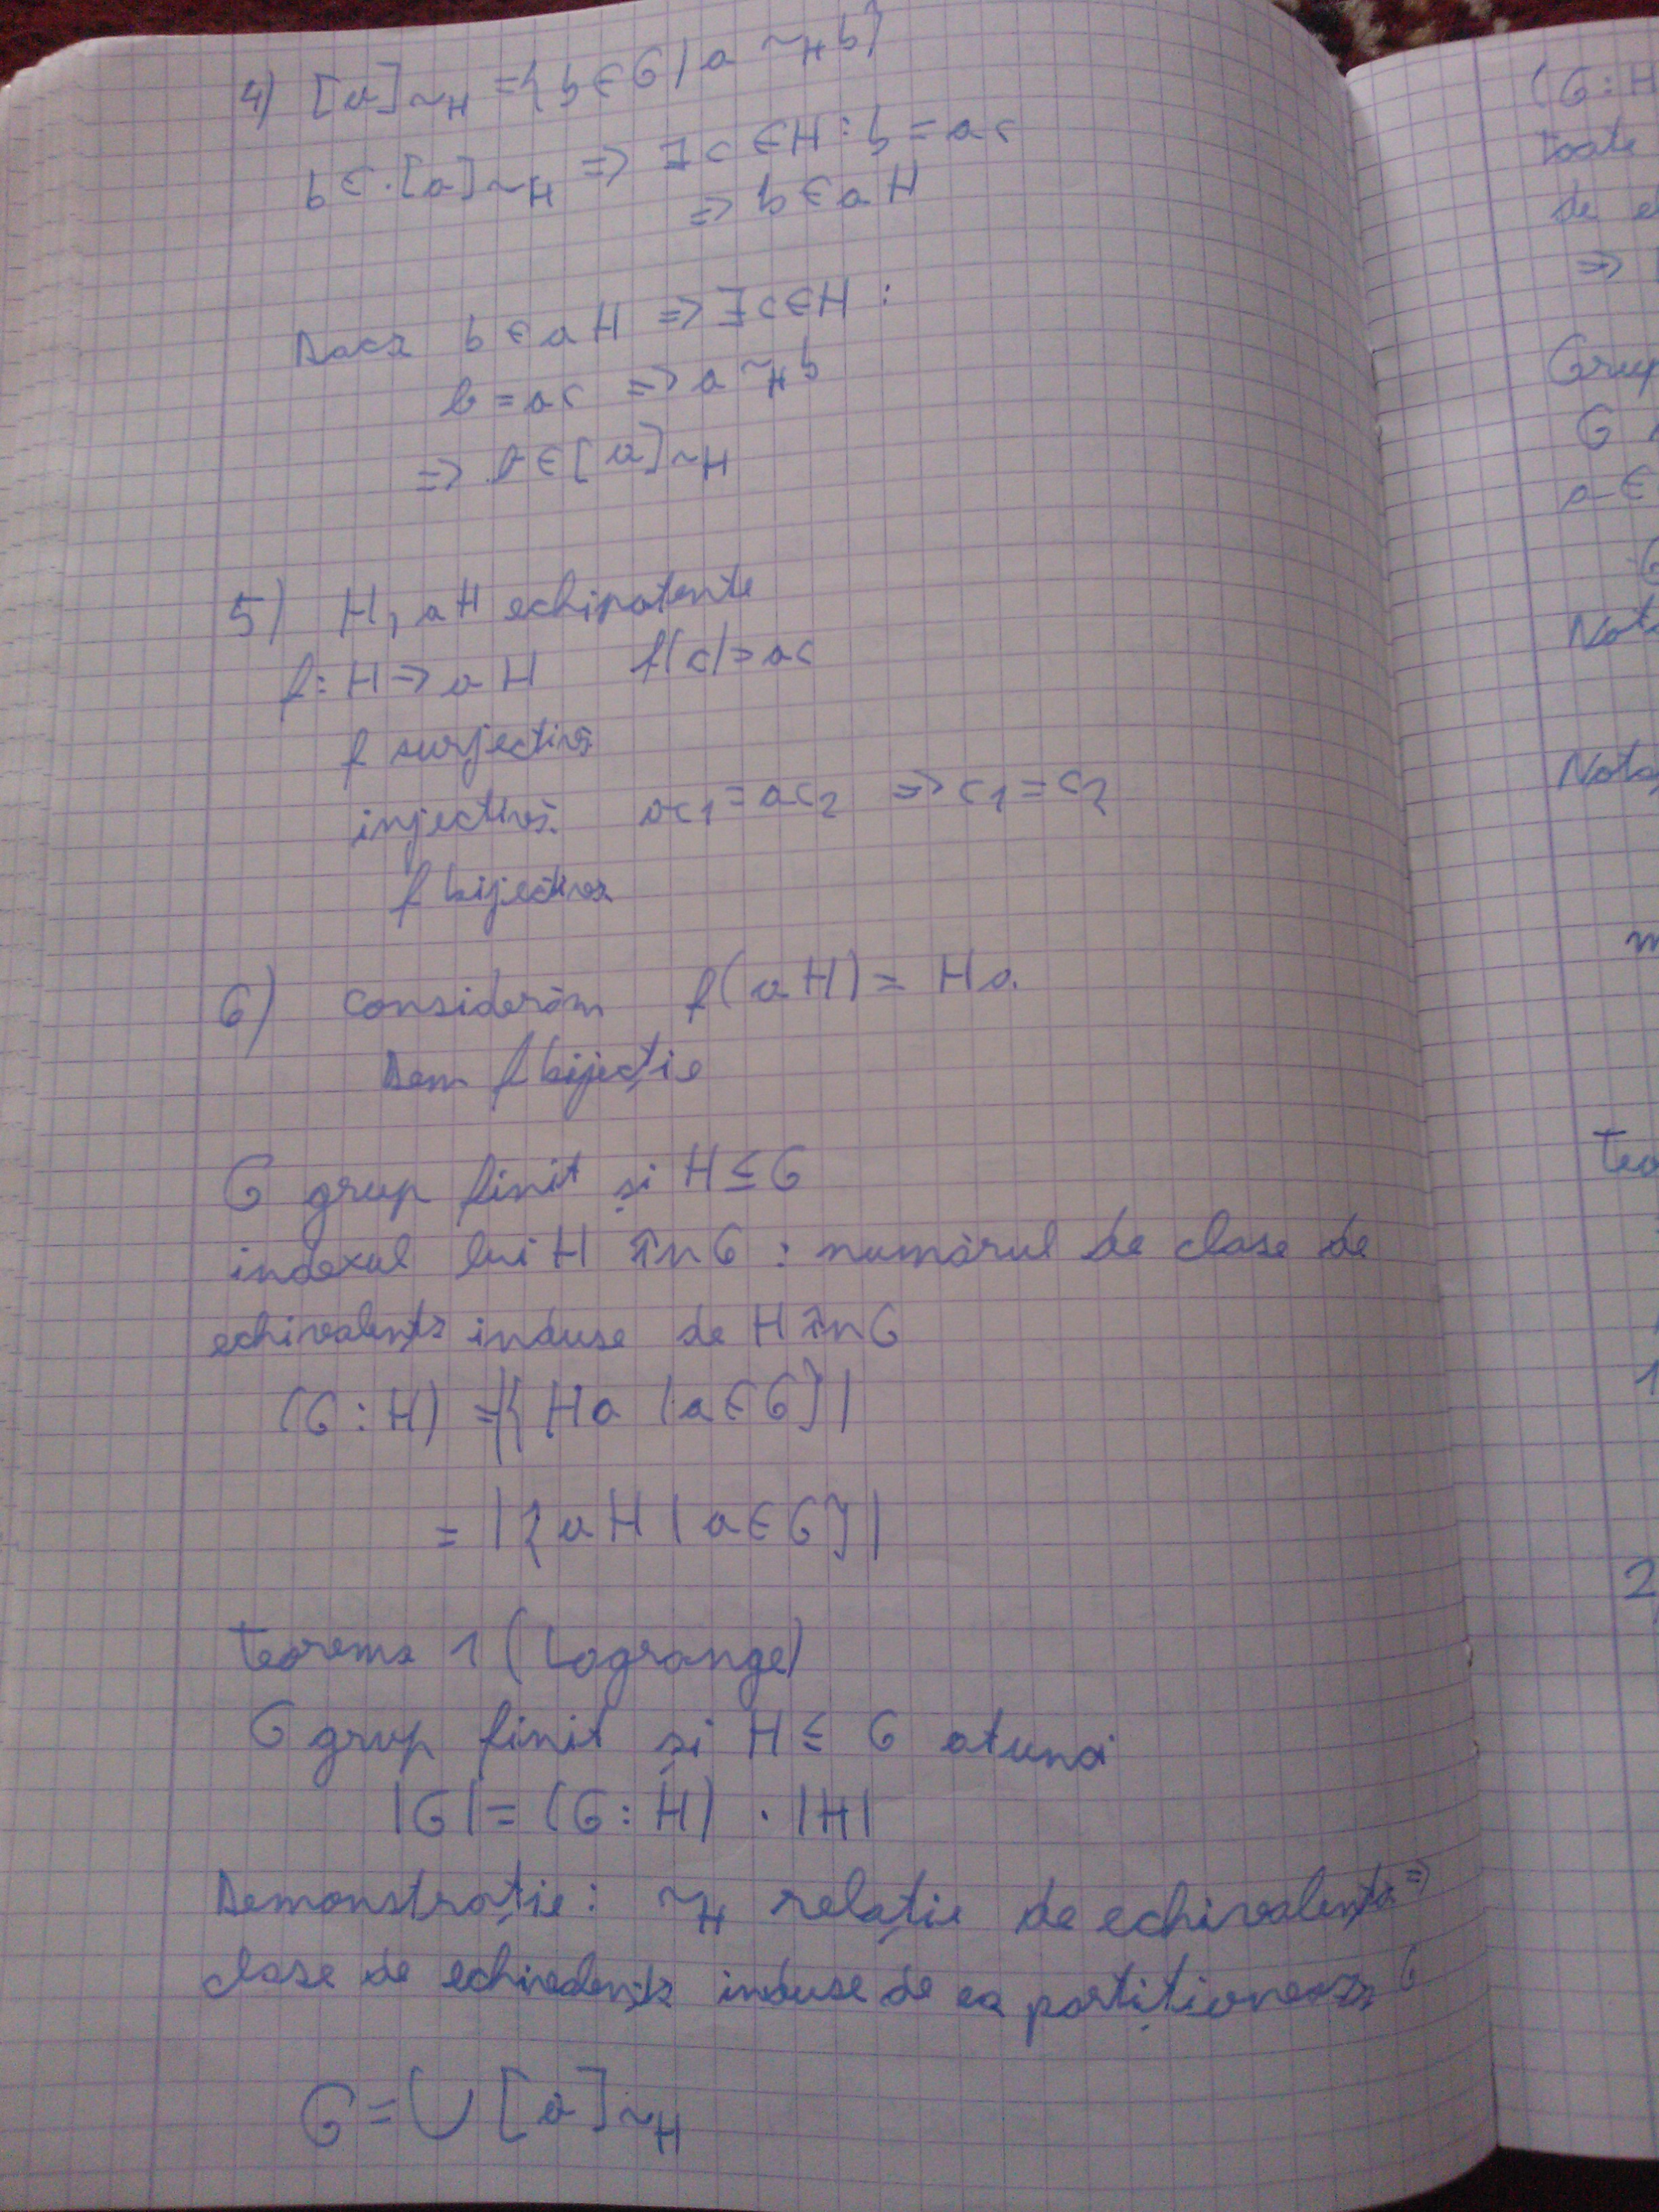 4) [a]~H = {b∈G | a ~H b}
b∈[a]~H => ∃c∈H: b=ac
=> b∈aH
Dacă b∈aH => ∃c∈H:
b=ac => a ~H b
=> b∈[a]~H
5) H, aH echipotente
f: H→aH f(c)=ac
f surjectivă
injectivă ac1=ac2 => c1=c2
f bijectivă
6) considerăm f(aH) = Ha
Dem f bijecție
G grup finit și H≤G
indexul lui H în G : numărul de clase de
echivalență induse de H în G
(G:H) =|{Ha |a∈G}|
= |{aH | a∈G}|
Teorema 1 (Lagrange)
G grup finit și H≤ G atunci
|G|= (G:H) · |H|
Demonstrație: ~H relație de echivalență =>
clase de echivalență induse de ea partiționează G
G=∪ [a]~H
(G:H
toate
de
=>
Grup
G
a∈
Not
Nota
m
Teo
1
2